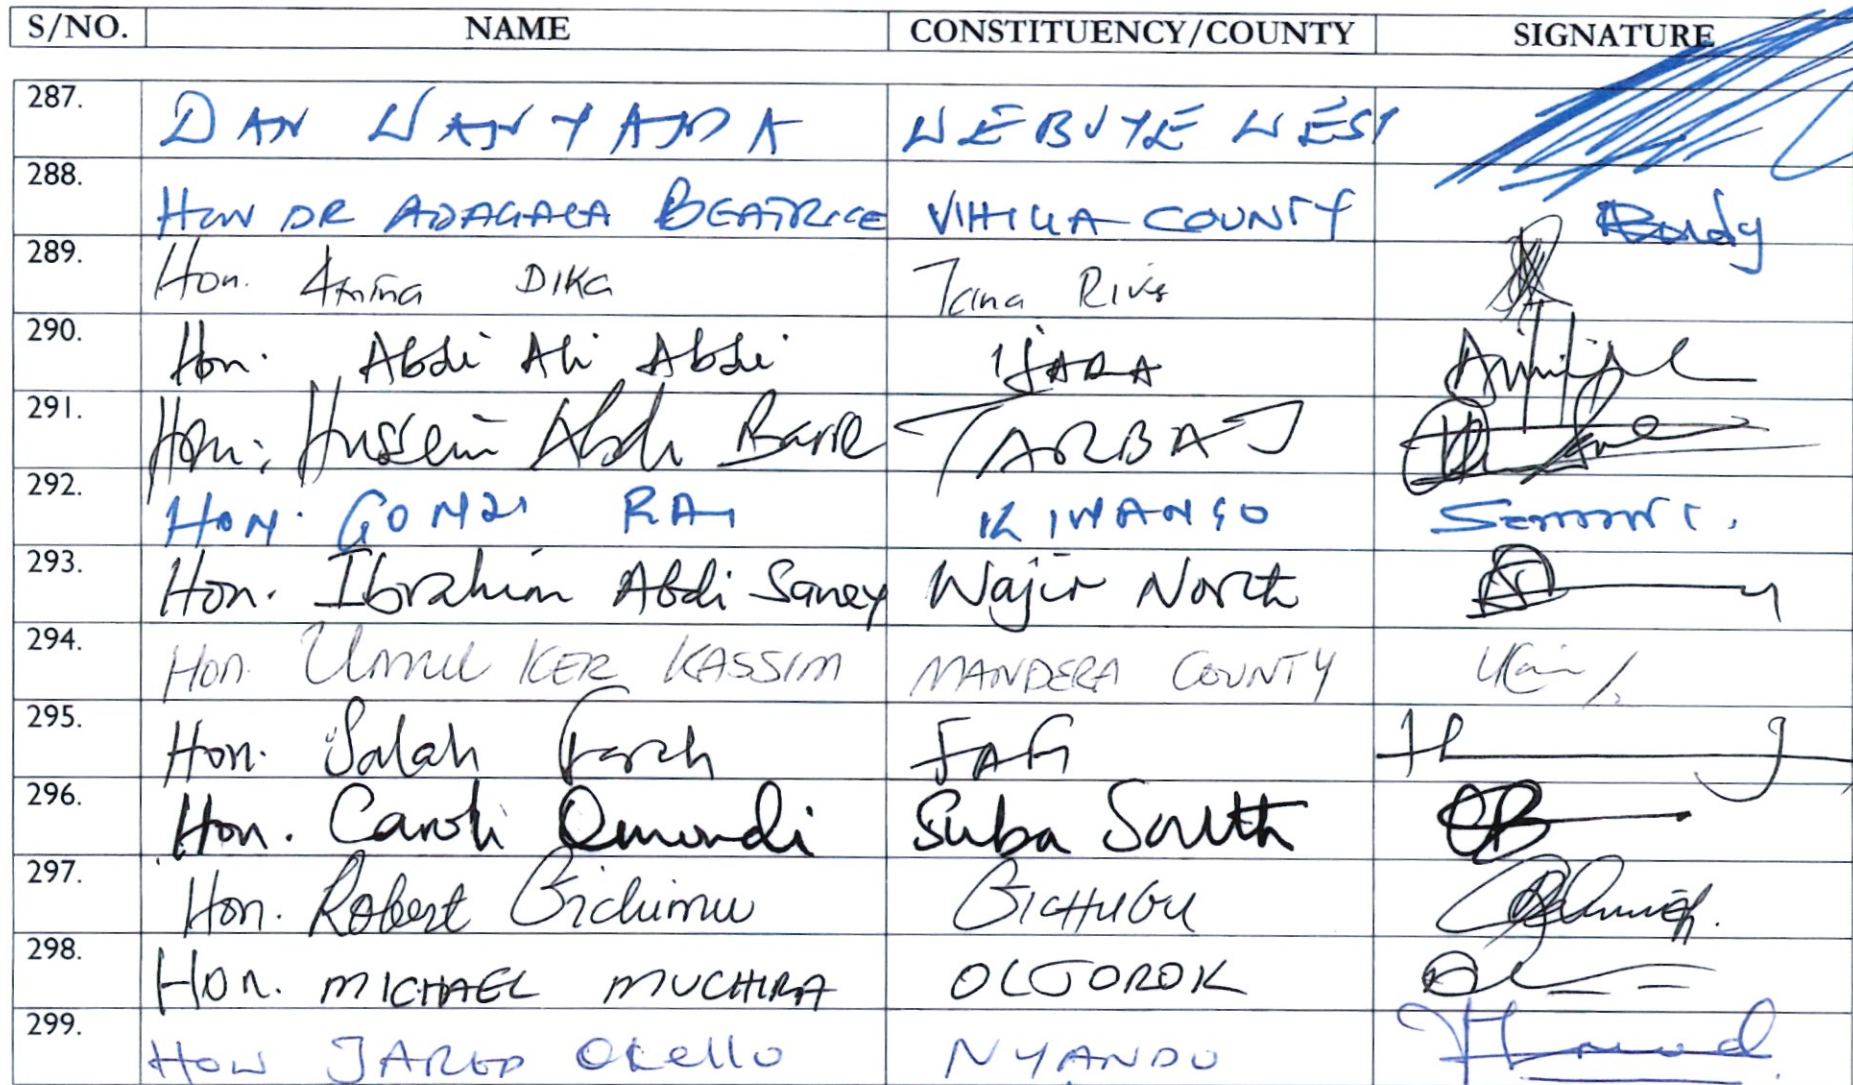 S/NO. NAME CONSTITUENCY/COUNTY SIGNATURE
287. DAN WANYAMA WEBUYE WEST
288. HON DR ADAGALA BEATRICE VIHIGA COUNTY
289. Hon. Amina DIKA Tana River
290. Hon. Abdi Ali Abdi IJARA
291. Hon. Hussein Abdi Barre TARBAJ
292. HON. GONZI RAI KINANGO
293. Hon. Ibrahim Abdi Saney Wajir North
294. Hon. Umul KER KASSIM MANDERA COUNTY
295. Hon. Salah Farah FAFI
296. Hon. Caroli Omondi Suba South
297. Hon. Robert Gichimu GICHUGU
298. Hon. MICHAEL MUCHIRA OLJOROK
299. HON JARED Okello NYANDO